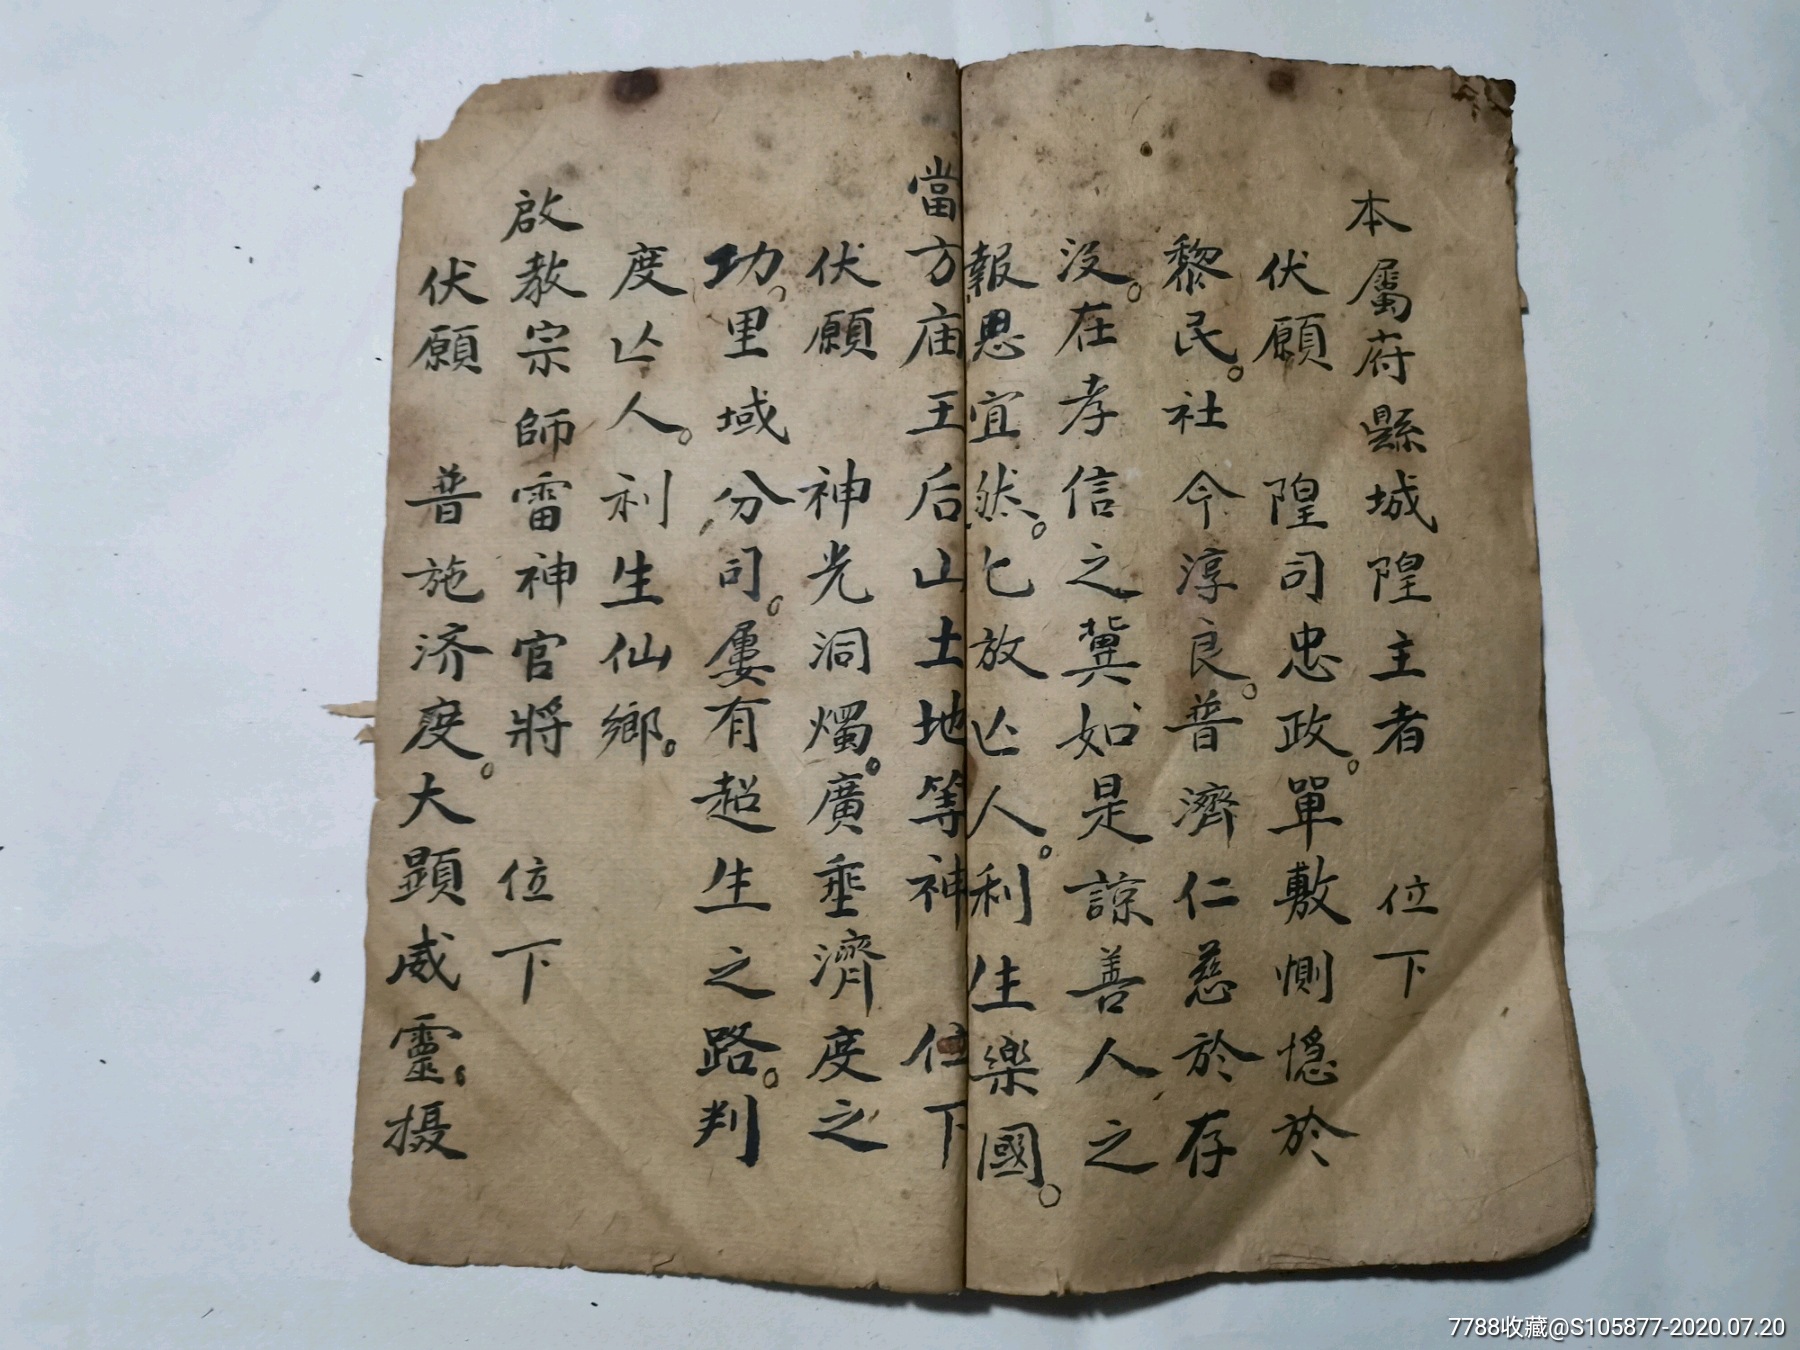 本屬府縣城隍主者 位下
伏願 隍司忠政。單敷惻隱於
黎民。社令淳良。普濟仁慈於存
没。在孝信之冀如是諒善人之
報恩宜然。乞放亾人。利生樂國。
當方庙王后山土地等神 位下
伏願 神光洞燭。廣垂濟度之
功。里域分司。屢有超生之路。判
度亾人。利生仙鄉。
啟教宗師雷神官將 位下
伏願 普施济度。大顕威靈。摄
7788收藏@S105877-2020.07.20